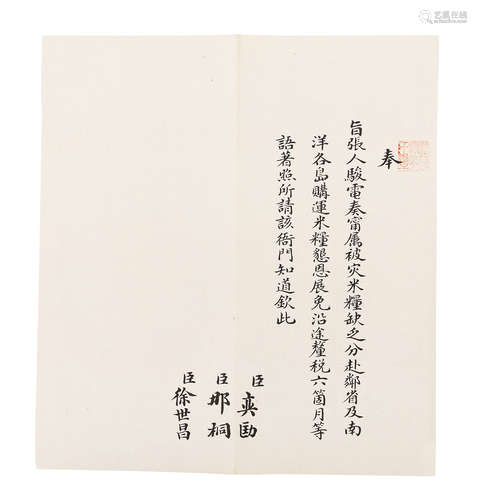 奉
旨張人駿電奏甯属被灾米糧缺乏分赴鄰省及南
洋各島購運米糧懇恩展免沿途釐税六箇月等
語著照所請該衙門知道欽此
臣奕劻
臣那桐
臣徐世昌
艺狐在线